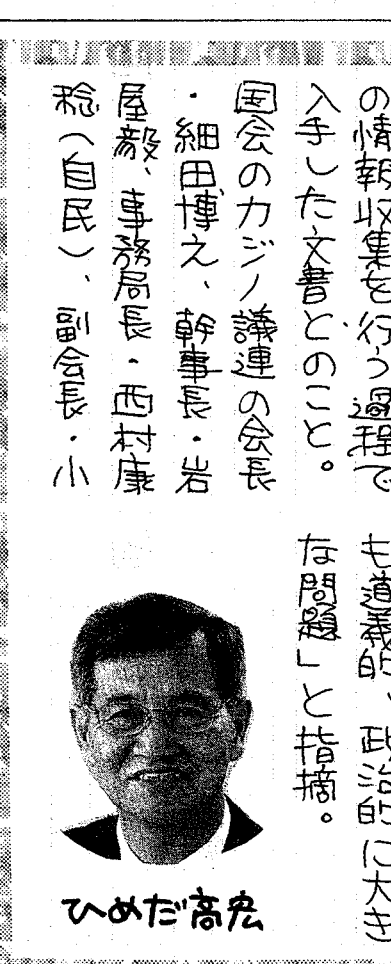 の情報収集を行う過程で
入手した文書とのこと。
国会のカジノ議連の会長
・細田博之、幹事長・岩
屋毅、事務局長・西村康
稔（自民）、副会長・小
も道義的、政治的に大き
な問題」と指摘。
ひめだ高宏